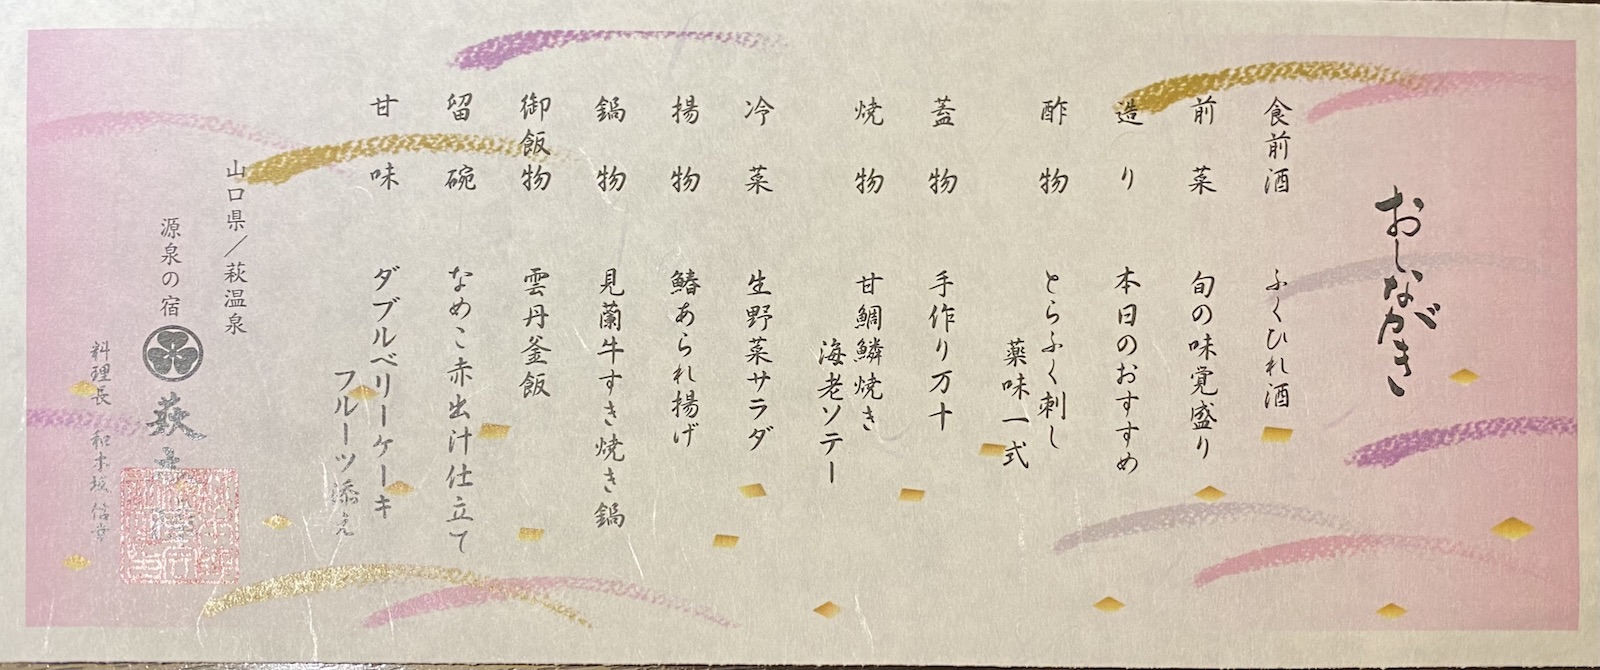 おしながき
食前酒　ふくひれ酒
前菜　旬の味覚盛り
造り　本日のおすすめ
酢物　とらふく刺し
薬味一式
蓋物　手作り万十
焼物　甘鯛鱗焼き
海老ソテー
冷菜　生野菜サラダ
揚物　鰆あられ揚げ
鍋物　見蘭牛すき焼き鍋
御飯物　雲丹釜飯
留碗　なめこ赤出汁仕立て
甘味　ダブルベリーケーキ
フルーツ添え
山口県/萩温泉
源泉の宿　萩
料理長　和木坂　信幸